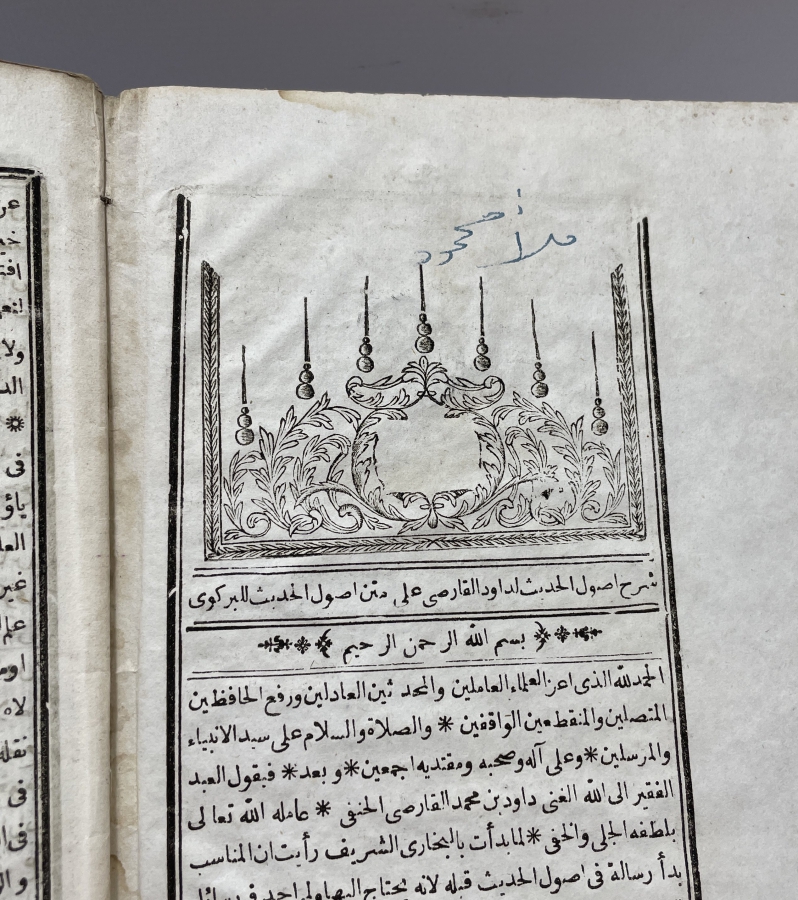 ملا محمود
شرح اصول الحديث لداود القارصى على متن اصول الحديث للبركوى
بسم الله الرحمن الرحيم
الحمد لله الذى اعز العلماء العاملين والمحدثين العادلين ورفع الحافظين
المتصلين والمنقطعين الواقفين * والصلاة والسلام على سيد الانبياء
والمرسلين * وعلى آله وصحبه ومقتديه اجمعين * وبعد * فيقول العبد
الفقير الى الله الغنى داود بن محمد القارصى الحنفى * عامله الله تعالى
بلطفه الجلى والخفى * لما بدأت بالبخارى الشريف رأيت ان المناسب
بدأ رسالة فى اصول الحديث قبله لانه يحتاج اليها ولم اجد فى
عن
ولا
*
فى
العا
غير
لاه
نقله
فى